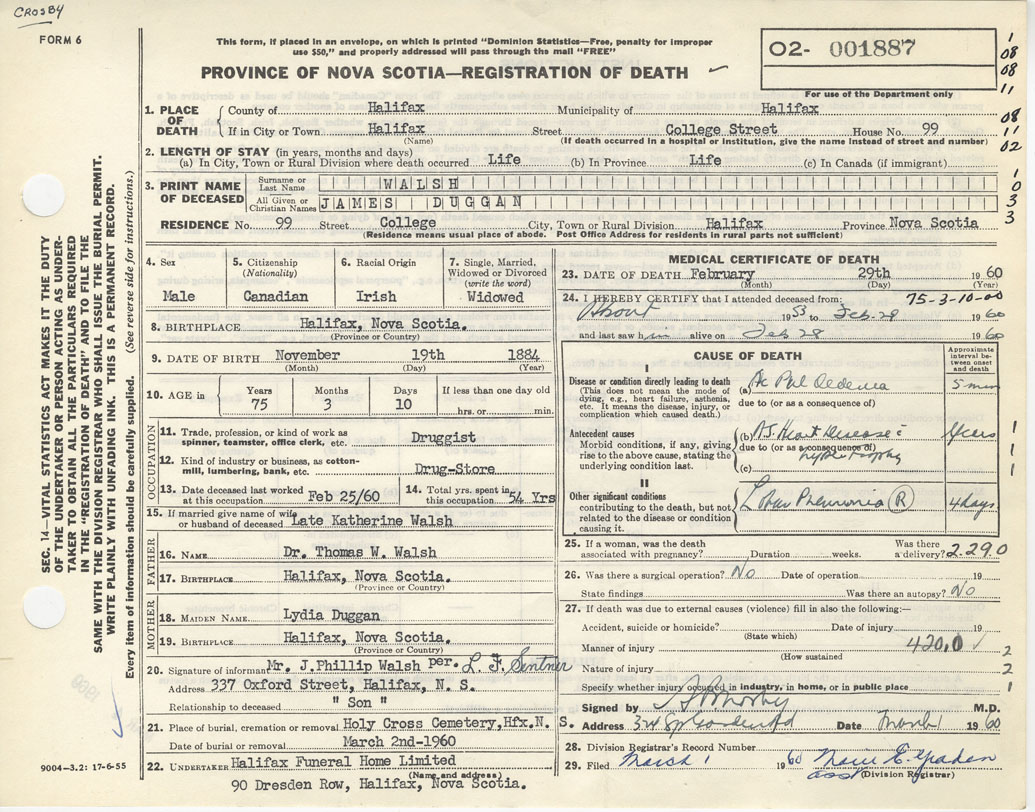 CROSBY
FORM 6
This form, if placed in an envelope, on which is printed "Dominion Statistics—Free, penalty for improper
use $50," and properly addressed will pass through the mail "FREE"
PROVINCE OF NOVA SCOTIA—REGISTRATION OF DEATH
02- 001887
For use of the Department only
1
08
08
11
08
11
02
1
0
3
3
1. PLACE OF DEATH
County of Halifax Municipality of Halifax
If in City or Town Halifax Street College Street House No. 99
(Name) (If death occurred in a hospital or institution, give the name instead of street and number)
2. LENGTH OF STAY (in years, months and days)
(a) In City, Town or Rural Division where death occurred Life (b) In Province Life (c) In Canada (if immigrant)
3. PRINT NAME OF DECEASED
Surname or Last Name WALSH
All Given or Christian Names JAMES DUGGAN
RESIDENCE No. 99 Street College City, Town or Rural Division Halifax Province Nova Scotia
(Residence means usual place of abode. Post Office Address for residents in rural parts not sufficient)
4. Sex
Male
5. Citizenship
(Nationality)
Canadian
6. Racial Origin
Irish
7. Single, Married,
Widowed or Divorced
(write the word)
Widowed
8. BIRTHPLACE Halifax, Nova Scotia.
(Province or Country)
9. DATE OF BIRTH November 19th 1884
(Month) (Day) (Year)
10. AGE in
Years 75
Months 3
Days 10
If less than one day old
hrs. or min.
OCCUPATION
11. Trade, profession, or kind of work as
spinner, teamster, office clerk, etc. Druggist
12. Kind of industry or business, as cotton-
mill, lumbering, bank, etc. Drug-Store
13. Date deceased last worked
at this occupation Feb 25/60
14. Total yrs. spent in
this occupation 54 Yrs
15. If married give name of wife
or husband of deceased Late Katherine Walsh
FATHER
16. NAME Dr. Thomas W. Walsh
17. BIRTHPLACE Halifax, Nova Scotia.
(Province or Country)
MOTHER
18. MAIDEN NAME Lydia Duggan
19. BIRTHPLACE Halifax, Nova Scotia.
(Province or Country)
20. Signature of informant Mr. J.Phillip Walsh per. L. F. Sentner
Address 337 Oxford Street, Halifax, N. S.
Relationship to deceased " Son "
21. Place of burial, cremation or removal Holy Cross Cemetery, Hfx.N. S.
Date of burial or removal March 2nd-1960
22. UNDERTAKER Halifax Funeral Home Limited
(Name and address)
90 Dresden Row, Halifax, Nova Scotia.
MEDICAL CERTIFICATE OF DEATH
23. DATE OF DEATH February 29th 1960
(Month) (Day) (Year)
24. I HEREBY CERTIFY that I attended deceased from: 75-3-10-00
About 1953 to Feb-28 1960
and last saw him alive on Feb 28 1960
CAUSE OF DEATH
Approximate interval between onset and death
I
Disease or condition directly leading to death
(This does not mean the mode of
dying, e.g., heart failure, asthenia,
etc. It means the disease, injury, or
complication which caused death.)
(a) Ac Pul Oedema 5 min
due to (or as a consequence of)
Antecedent causes
Morbid conditions, if any, giving
rise to the above cause, stating the
underlying condition last.
(b) AS Heart Disease c Years
due to (or as a consequence of)
hypertrophy
(c)
II
Other significant conditions
contributing to the death, but not
related to the disease or condition
causing it.
Lobar Pneumonia (R) 4 days
1
1
1
25. If a woman, was the death
associated with pregnancy? Duration weeks. Was there
a delivery? 2.290
26. Was there a surgical operation? No Date of operation 19
State findings Was there an autopsy? No
27. If death was due to external causes (violence) fill in also the following:—
Accident, suicide or homicide? Date of injury 19
(State which)
Manner of injury 420.0
(How sustained
Nature of injury
Specify whether injury occurred in industry, in home, or in public place
2
2
1
Signed by M.D.
Address Date March 1 1960
28. Division Registrar's Record Number
29. Filed March 1 1960
asst (Division Registrar)
SEC. 14—VITAL STATISTICS ACT MAKES IT THE DUTY
OF THE UNDERTAKER OR PERSON ACTING AS UNDER-
TAKER TO OBTAIN ALL THE PARTICULARS REQUIRED
IN THE "REGISTRATION OF DEATH" AND TO FILE THE
SAME WITH THE DIVISION REGISTRAR WHO SHALL ISSUE THE BURIAL PERMIT.
WRITE PLAINLY WITH UNFADING INK. THIS IS A PERMANENT RECORD.
Every item of information should be carefully supplied. (See reverse side for instructions.)
9004-3.2: 17-6-55